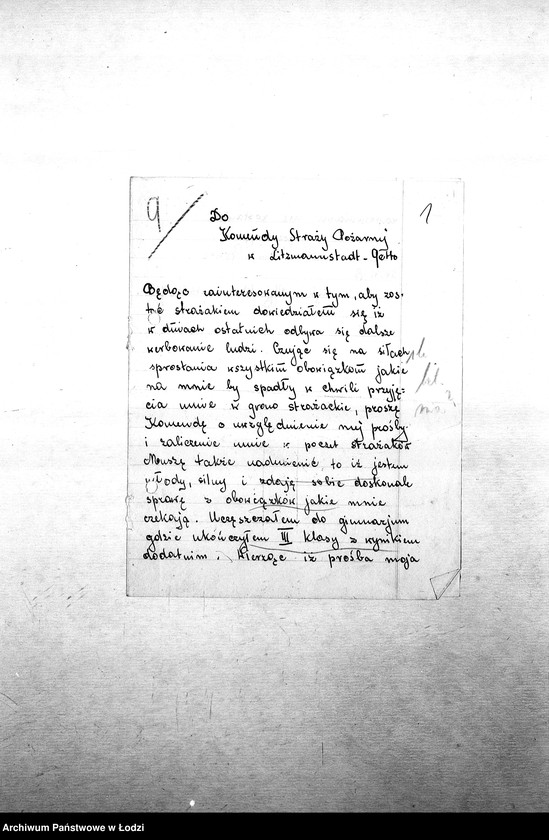 9/
1
Do
Komendy Straży Pożarnej
w Litzmannstadt-Getto
Będąc zainteresowanym w tym, aby zos-
tać strażakiem dowiedziałem się iż
w dniach ostatnich odbywa się dalsze
werbowanie ludzi. Czując się na siłach
sprostania wszystkim obowiązkom jakie
na mnie by spadły w chwili przyję-
cia mnie w grono strażackie, proszę
Komendę o uwzględnienie mej prośby
i zaliczenie mnie w poczet strażaków
Muszę także nadmienić, to iż jestem
młody, silny i zdaję sobie doskonale
sprawę z obowiązków jakie mnie
czekają. Uczęszczałem do gimnazjum
gdzie ukończyłem III klasy z wynikiem
dodatnim. Wierząc iż prośba moja
Archiwum Państwowe w Łodzi